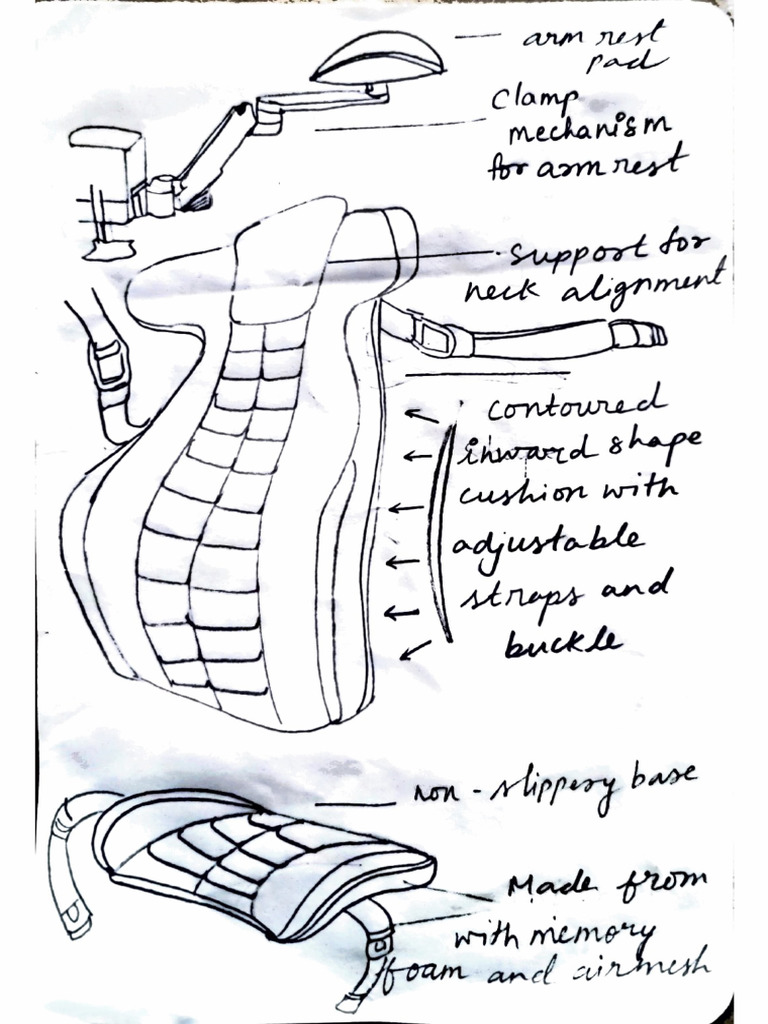 arm rest
pad
Clamp
mechanism
for arm rest
support for
neck alignment
contoured
inward shape
cushion with
adjustable
straps and
buckle
non-slippery base
Made from
with memory
foam and airmesh